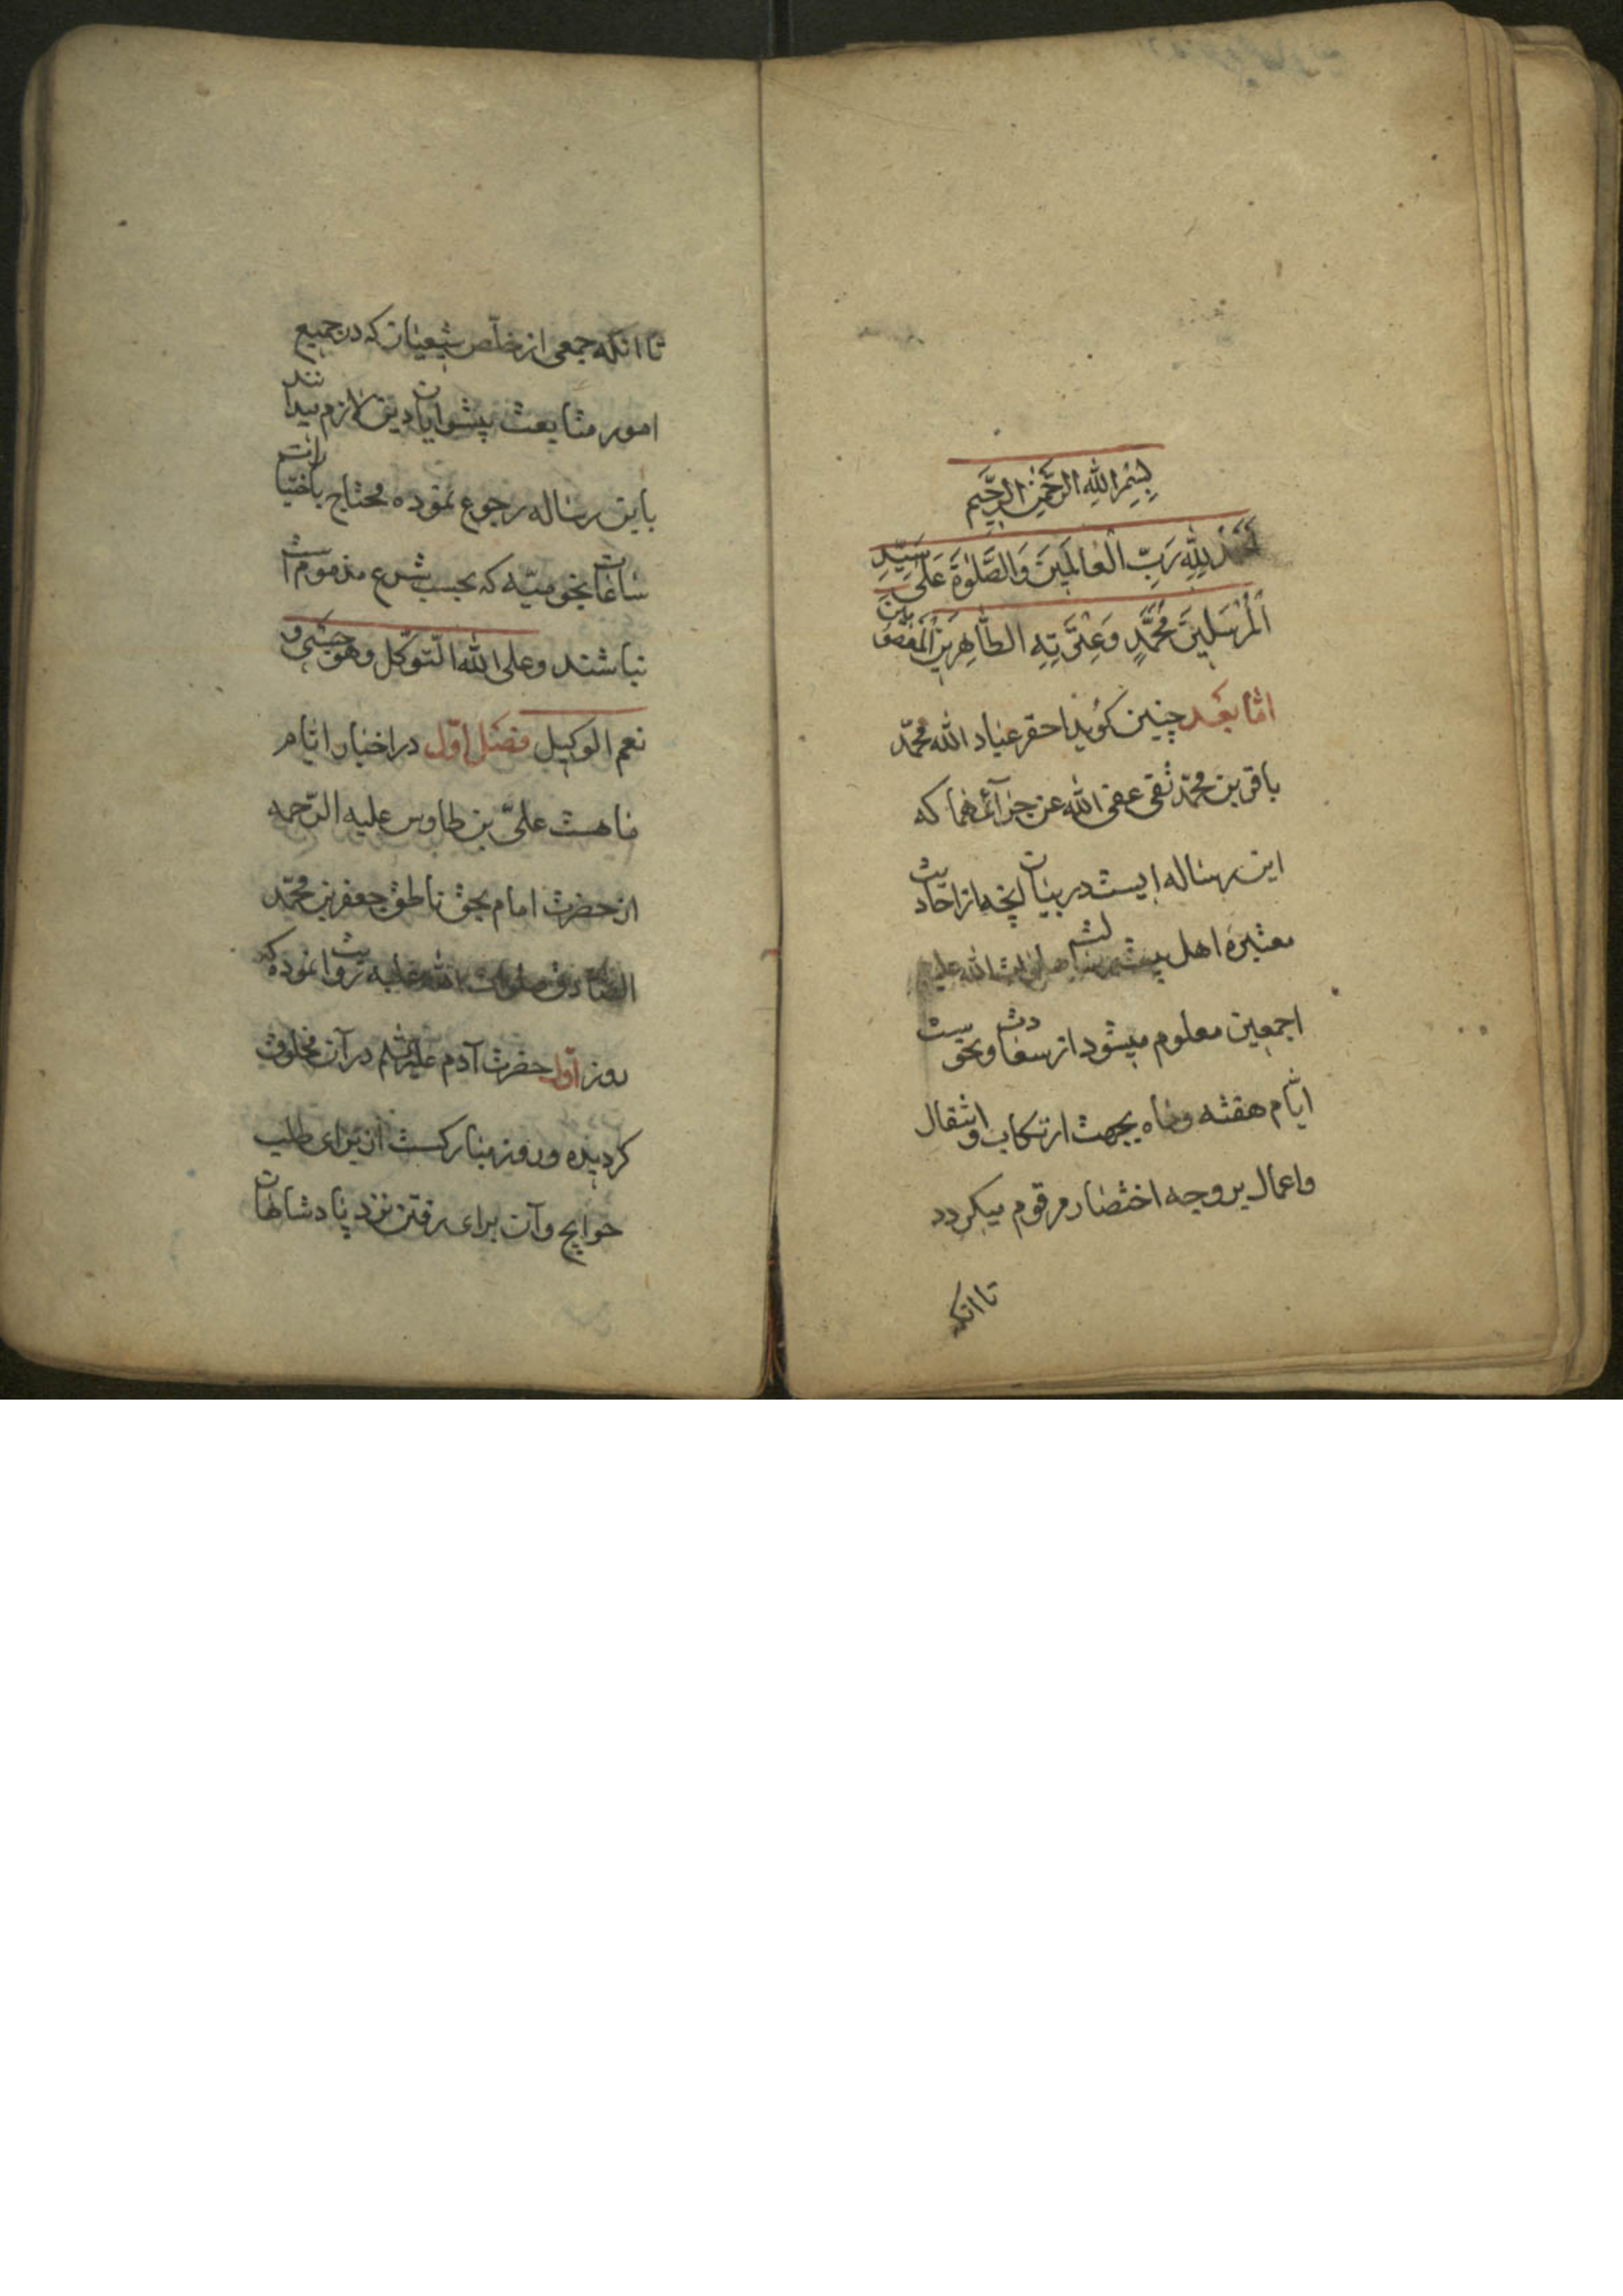 بِسْمِ اللهِ الرَّحْمٰنِ الرَّحِيمِ
اَلْحَمْدُ لِلّٰهِ رَبِّ الْعٰالَمِينَ وَالصَّلٰوةُ عَلَى سَيِّدِ
الْمُرْسَلِينَ مُحَمَّدٍ وَعِتْرَتِهِ الطَّاهِرِينَ الْمَعْصُومِينَ
امّا بَعْد چنين كويد احقر عباد الله محمّد
باقر بن محمّد تقى عفى الله عن جرآئمهما كه
اين رساله ايست در بيان انچه از احاديث
معتبره اهل بيت رسالت صلوات الله عليهم
اجمعين معلوم ميشود از سعادت و نحوست
ايّام هفته و ماه بجهت ارتكاب و اشتقال
واعمال بر وجه اختصار مرقوم ميكردد
تا انكه
تا انكه جمعى از خلّص شيعيان كه در جميع
امور متابعت پيشوايان دين لازم ميدانند
باين رساله رجوع نموده محتاج باختيارات
ساعات نجوميّه كه بحسب شرع مذموم است
نباشند وعلى الله التّوكّل وهو حسبى و
نعم الوكيل فصل اوّل در اختيار ايّام
ماهست علىّ بن طاوس عليه الرّحمه
از حضرت امام بحق ناطق جعفر بن محمّد
الصّادق صلوات الله عليه روايت نموده كه
روز اوّل حضرت آدم عليه السّلم در آن مخلوق
كرديده و روز مباركست از براى طلب
حوايج و آن براى رفتن نزد پادشاهان